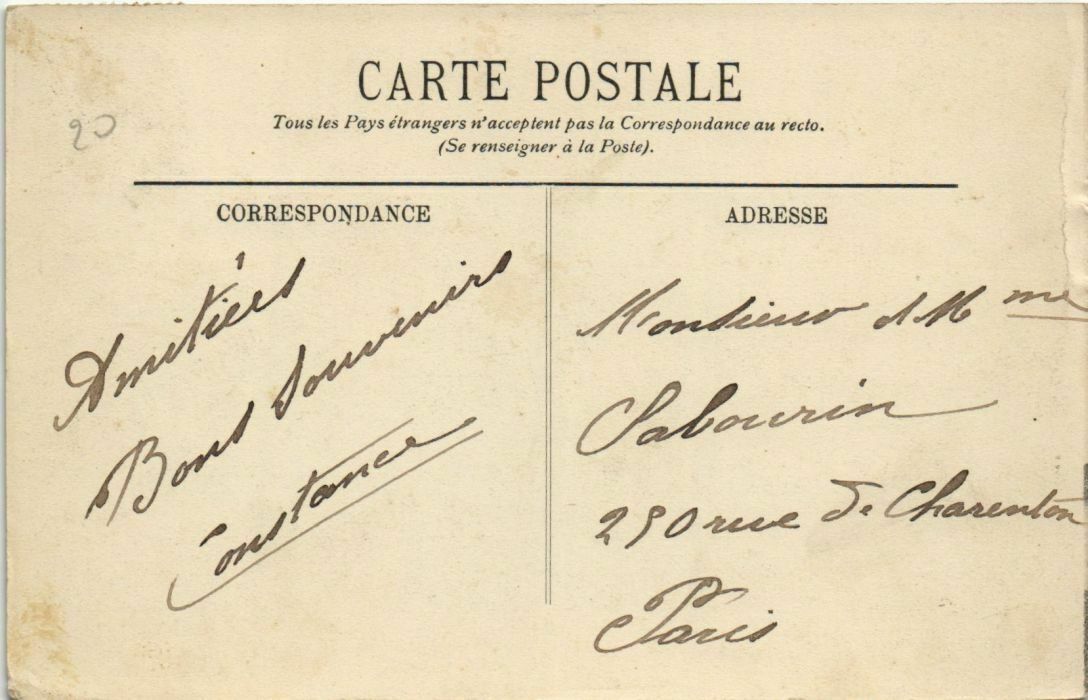 20
CARTE POSTALE
Tous les Pays étrangers n'acceptent pas la Correspondance au recto.
(Se renseigner à la Poste).
CORRESPONDANCE
Amitiées
Bons Souvenirs
Constance
ADRESSE
Monsieur et Mme
Sabourin
250 rue de Charenton
Paris